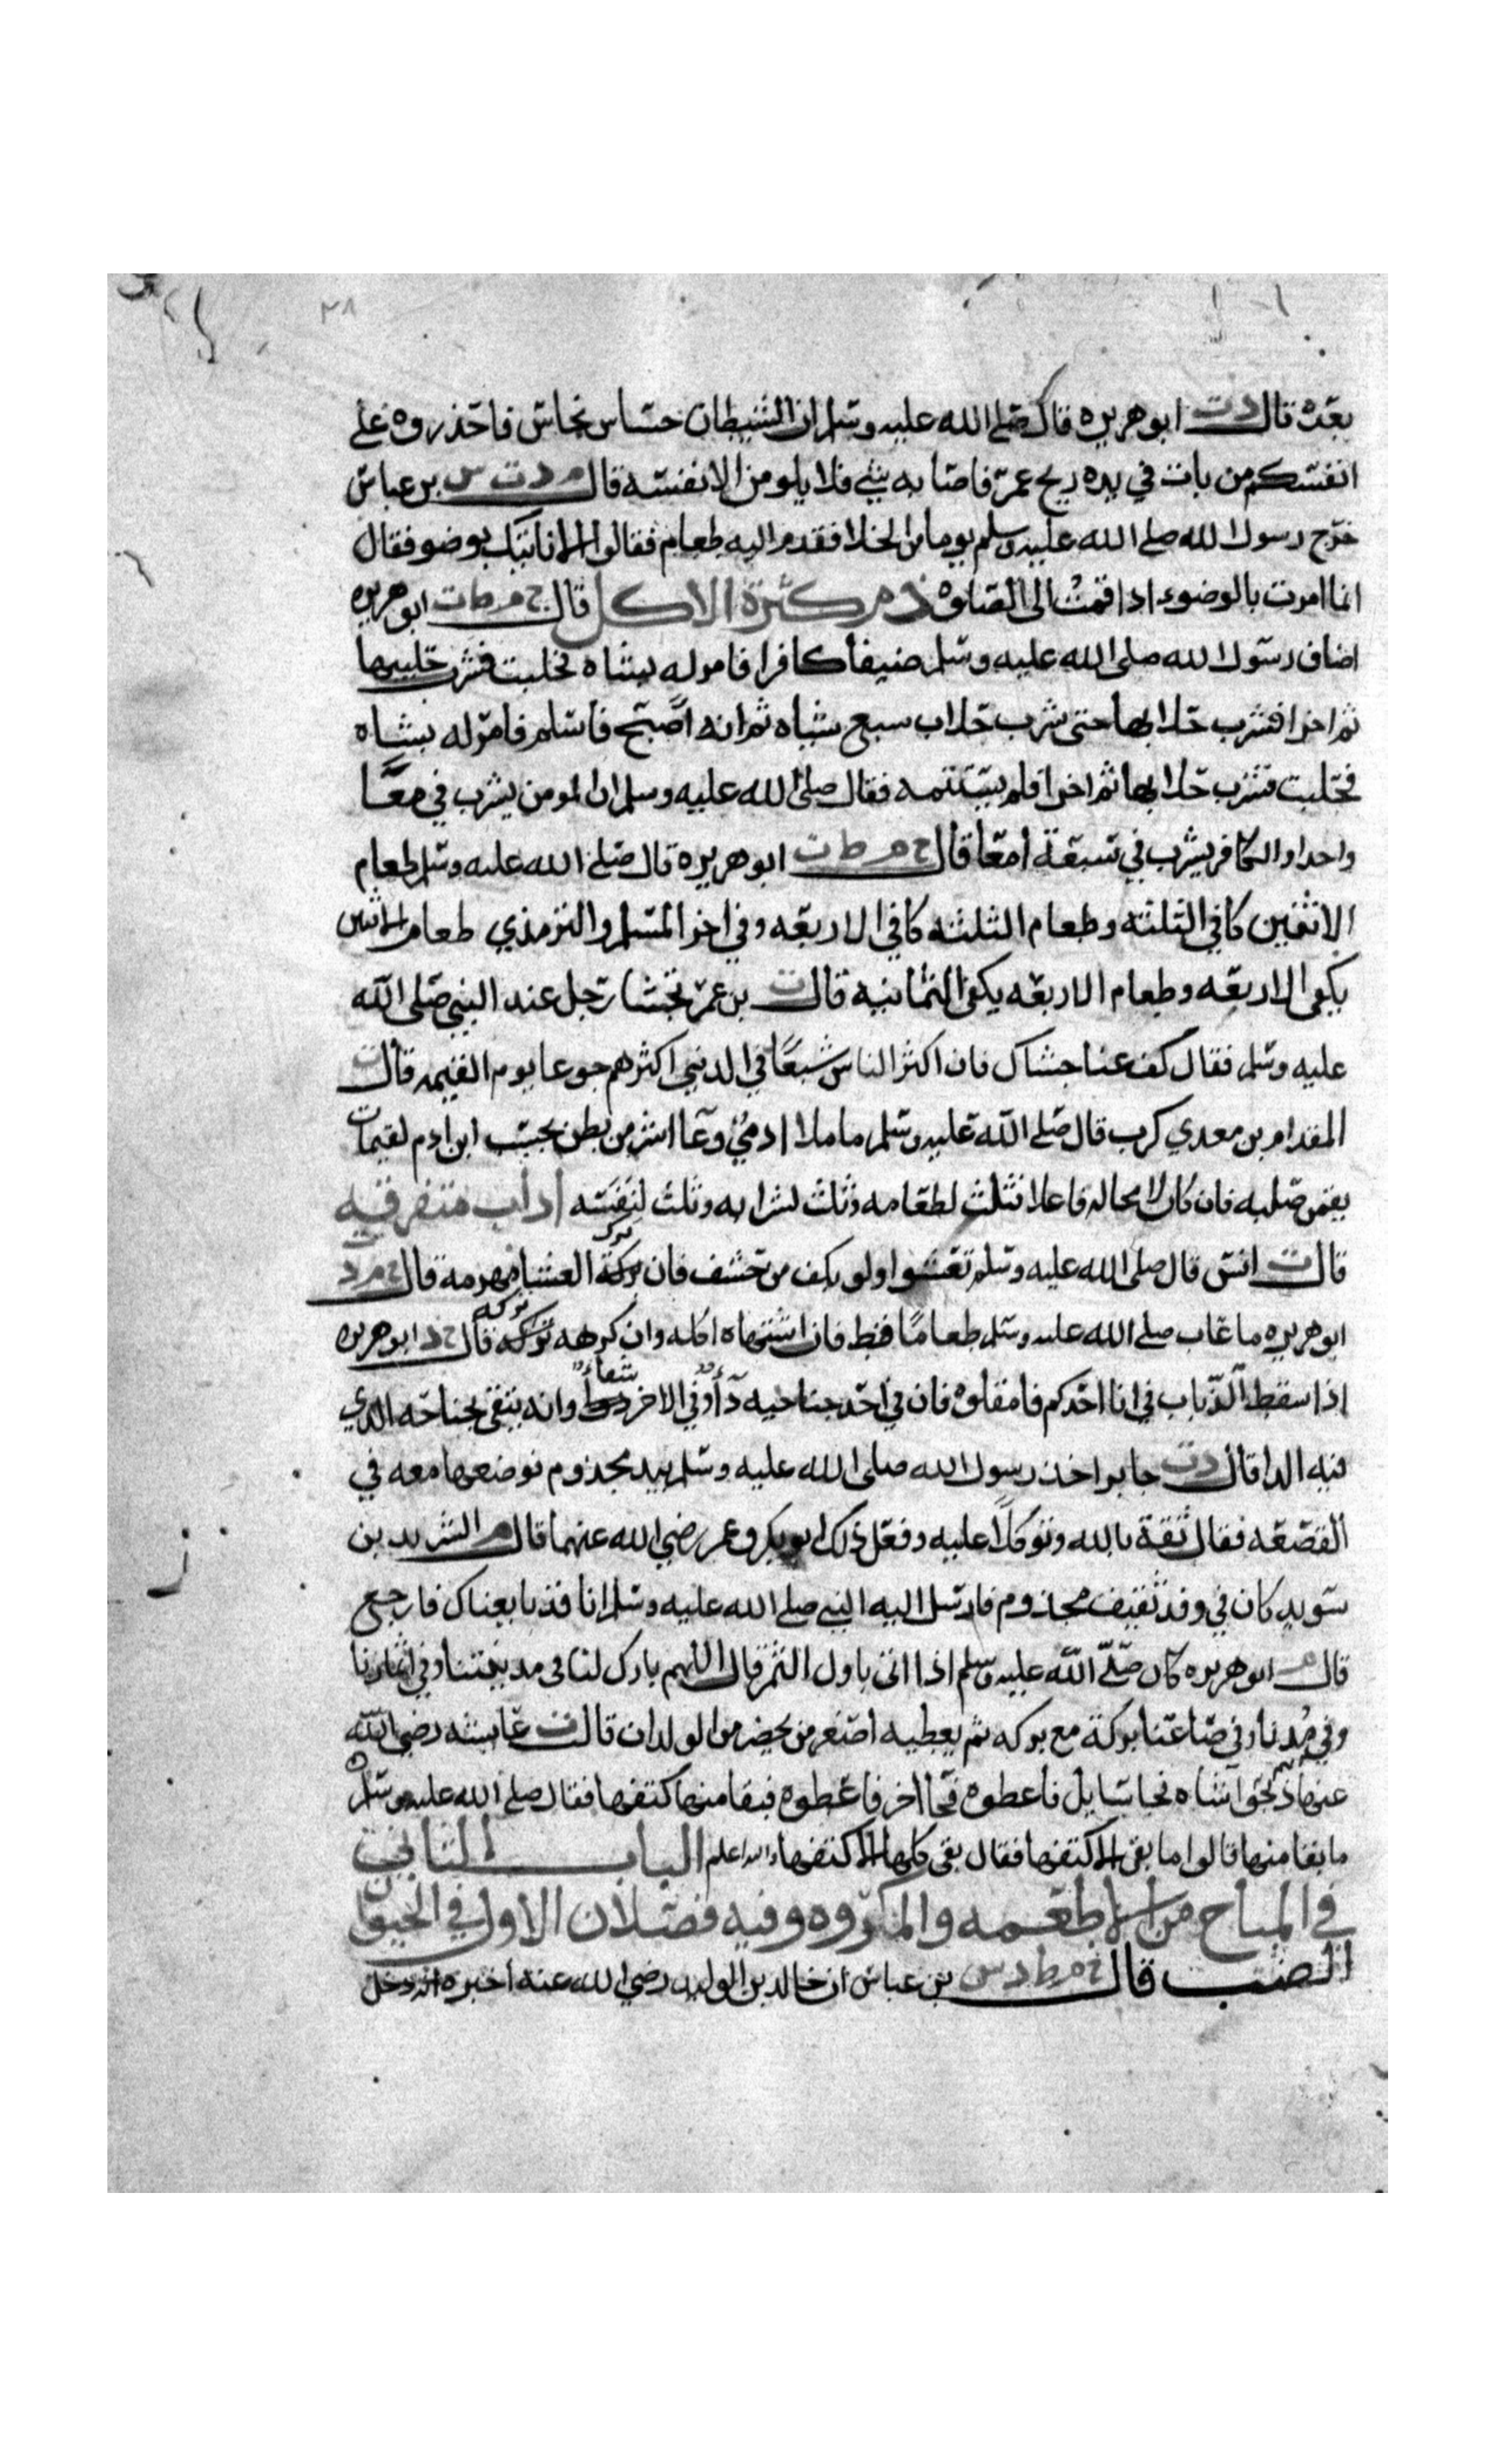 ٣٨
بعده قال د ت ابو هريره قال صلى الله عليه وسلم ان الشيطان حساس نحاس فاحذروه على
انفسكم من بات في يده ريح غمر فاصابه شي فلا يلومن الا نفسه قال م د ت س بن عباس
خرج رسول الله صلى الله عليه وسلم يوما من الخلا فقدم اليه طعام فقالوا الا ناتيك بوضو فقال
انما امرت بالوضوء اذا قمت الى الصلوه ذم كثرة الاكل قال خ م ط ت ابو هريره
اضاف رسول الله صلى الله عليه وسلم ضيفا كافرا فامر له بشاه فحلبت فشرب حليبها
ثم اخرا فشرب حلابها حتى شرب حلاب سبع شياه ثم انه اصبح فاسلم فامر له بشاه
فحلبت فشرب حلابها ثم اخرا فلم يستتمه فقال صلى الله عليه وسلم ان المومن يشرب في معا
واحدا والكافر يشرب في سبعة امعا قال خ م ط ت ابو هريره قال صلى الله عليه وسلم طعام
الاثنين كافي الثلثه وطعام الثلثه كافي الاربعه وفي اخر المسلم والترمذي طعام الاثنين
يكفي الاربعه وطعام الاربعه يكفي الثمانيه قال ت بن عمر تجشا رجل عند النبي صلى الله
عليه وسلم فقال كف عنا جشاك فان اكثر الناس شبعا في الدنيي اكثرهم جوعا يوم القيمه قال ت
المقدام بن معدي كرب قال صلى الله عليه وسلم ما ملا ادمي وعا اشر من بطن بحسب ابن ادم لقيمات
يقمن صلبه فان كان لا محاله فاعلا فثلث لطعامه وثلث لشرابه وثلث لنفسه اداب متفرقيه
قال ت انس قال صلى الله عليه وسلم تعشوا ولو بكف من حشف فان ترك العشا مهرمه قال خ م د
ابو هريره ما عاب صلى الله عليه وسلم طعاما قط فان اشتهاه اكله وان كرهه تركه قال خ د ابو هريره
اذا سقط الذباب في انا احدكم فامقلوه فان في احد جناحيه دآ وفي الاخر شفاء وانه يتقي بجناحه الذي
فيه الدا قال د ت جابر اخذ رسول الله صلى الله عليه وسلم بيد مجذوم فوضعها معه في
القصعه فقال ثقة بالله وتوكلا عليه وفعل ذلك ابو بكر وعمر رضي الله عنهما قال م الشريد بن
سويد كان في وفد ثقيف مجذوم فارسل اليه النبي صلى الله عليه وسلم انا قد بايعناك فارجع
قال م ابو هريره كان صلى الله عليه وسلم اذا اتى باول الثمر قال اللهم بارك لنا في مدينتنا وفي اثمارنا
وفي مدنا وفي صاعنا بركة مع بركه ثم يعطيه اصغر من يحضر من الولدان قال ت عايشه رضي الله
عنها شاه فجا سايل فاعطوه فجا اخر فاعطوه فبقا منها كتفها فقال صلى الله عليه وسلم
ما بقا منها قالوا ما بقى الا كتفها فقال بقى كلها الا كتفها والله اعلم الباب الثاني
في المباح من الاطعمه والمكروه وفيه فصلان الاول في الحيوان
الضب قال خ م ط د س بن عباس ان خالد بن الوليد رضي الله عنه اخبره انه دخل